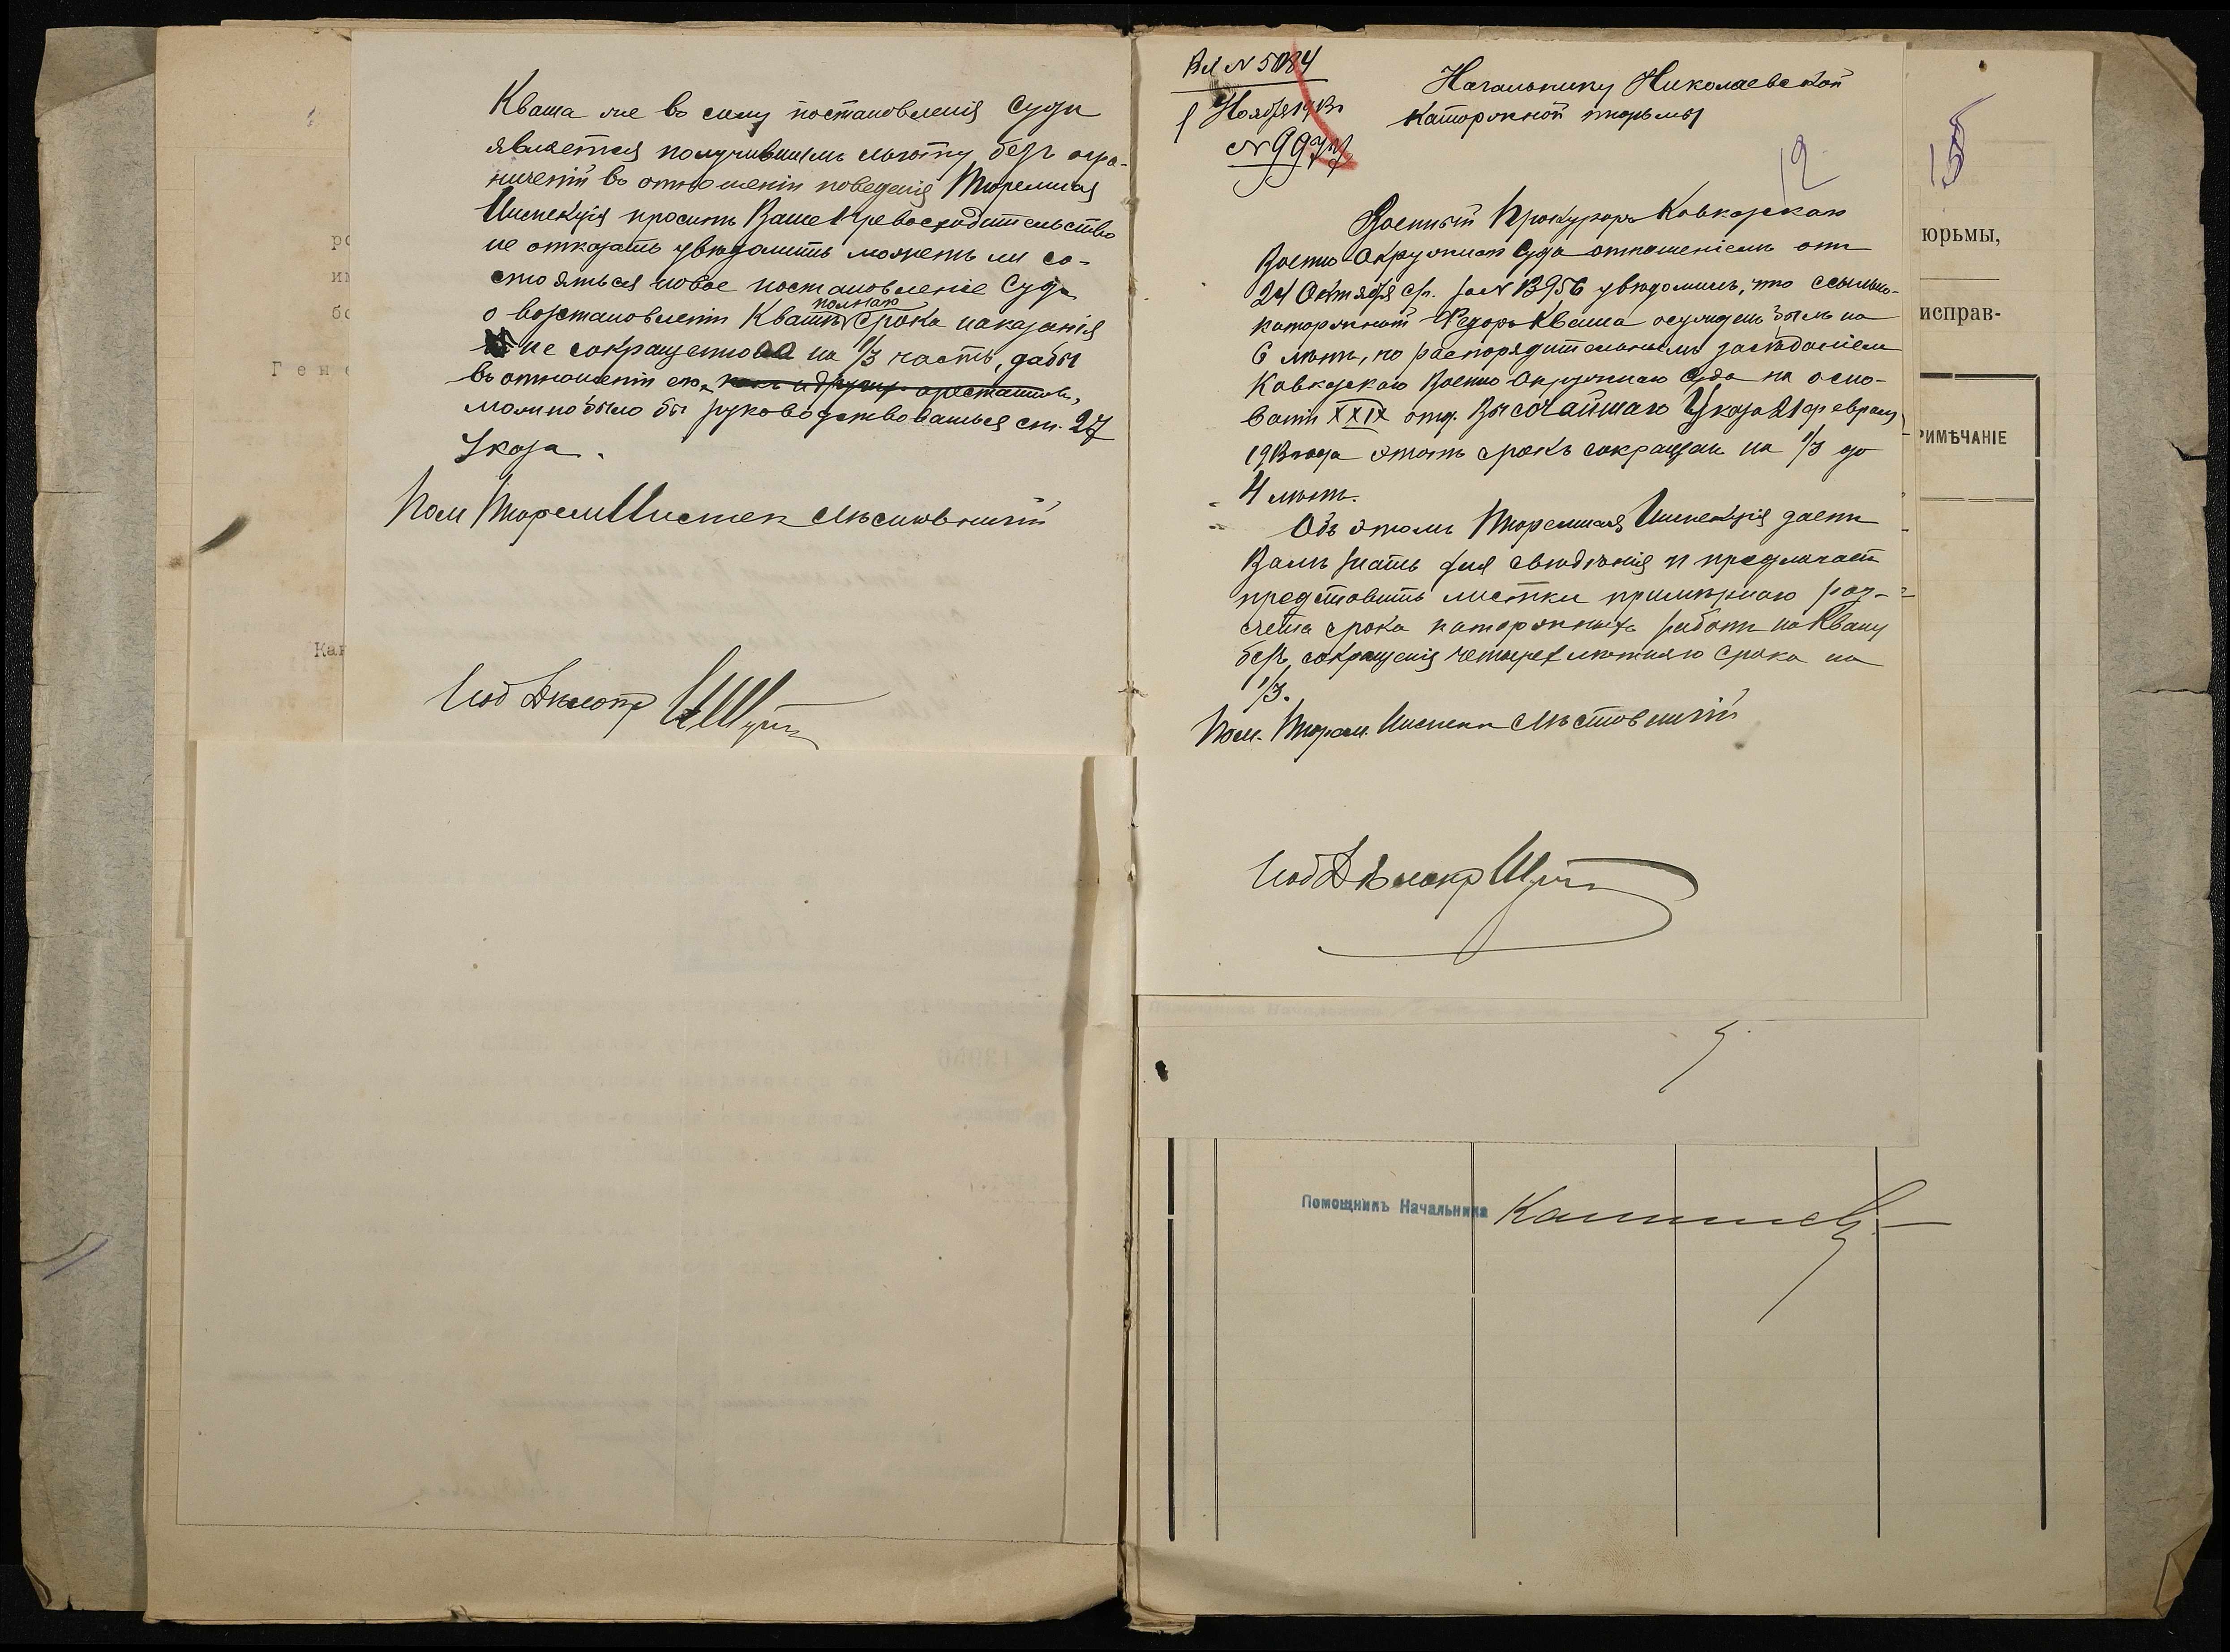 Кваша же въ силу постановленія Суда
является получившимъ льготу безъ огра-
ниченій въ отношеніи поведенія Тюремная
Инспекція проситъ Ваше Превосходительство
не отказать увѣдомить можетъ ли со-
стояться новое постановленіе Суда
о возстановленіи Квашѣ полнаго срока наказанія
не сокращеннаго на 1/3 часть, дабы
въ отношеніи его, какъ и другихъ арестантовъ,
можно было бы руководствоваться ст. 27
Указа.
Пом Тюрем Инспек Мѣстовскій
И об Дѣлопр
рс
и
бо
Гене
Кан
Вл № 5084
1 Ноября 1913 г.
№ 9977
Начальнику Николаевской
каторжной тюрьмы
12
15
Военный Прокуроръ Кавказскаго
Военно-Окружнаго Суда отношеніемъ отъ
24 Октября с/г. за № 13956 увѣдомилъ, что ссыльно-
каторжный Ѳедоръ Кваша осужденъ былъ на
6 лѣтъ, но распорядительнымъ засѣданіемъ
Кавказскаго Военно-Окружнаго Суда на осно-
ваніи XXIX отд. Высочайшаго Указа 21 февраля
1913 года этотъ срокъ сокращенъ на 1/3 до
4 лѣтъ.
Объ этомъ Тюремная Инспекція даетъ
Вамъ знать для свѣдѣнія и предлагаетъ
представить листки примѣрнаго раз-
счета срока каторжныхъ работъ на Квашу
безъ сокращенія четырехлѣтняго срока на
1/3.
Пом. Тюрем. Инспек Мѣстовскій
И об Дѣлопр
юрьмы,
исправ-
РИМѢЧАНІЕ
Помощникъ Начальника